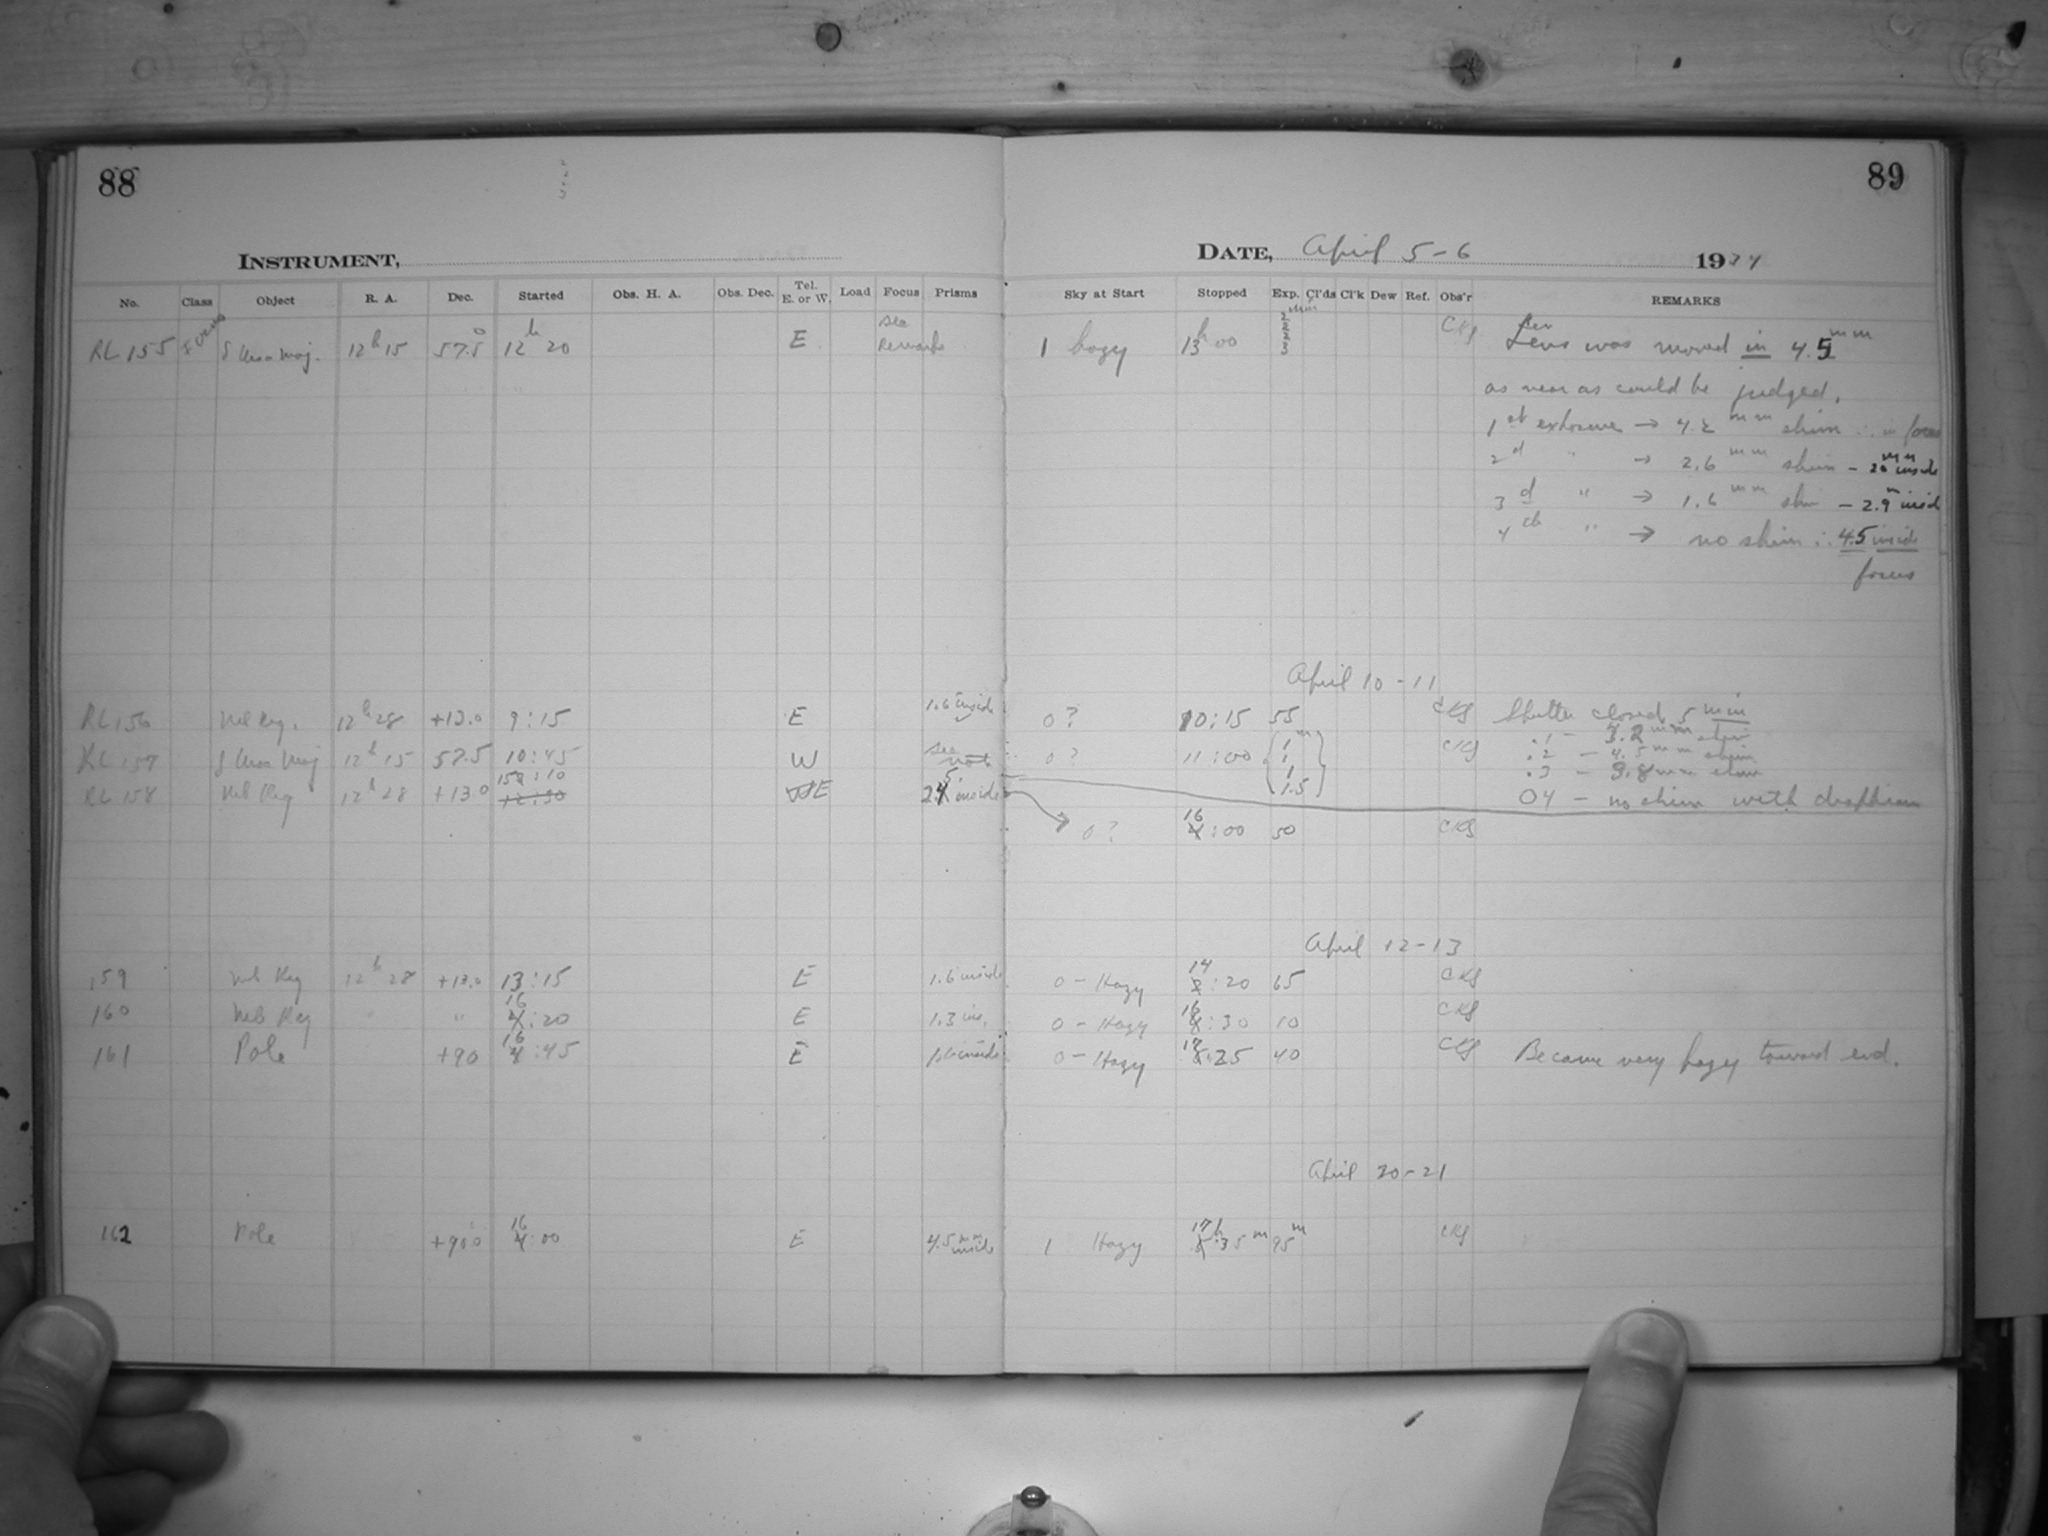 88
89
INSTRUMENT,
DATE, April 5-6 1934
No. Class Object R. A. Dec. Started Obs. H. A. Obs. Dec. Tel. E. or W. Load Focus Prisms Sky at Start Stopped Exp. Cl'ds Cl'k Dew Ref. Obs'r REMARKS
RL 155 Focus δ Ursa Maj. 12h 15 57.5° 12h 20 E See Remarks 1 hazy 13h 00 2 min 2 3 3 CKS Lens was moved in 4.5 mm
as near as could be judged.
1st exposure → 4.2 mm shim ∴ in focus
2d " → 2.6 mm shim - 20 mm inside
3d " → 1.6 mm shim - 2.9 m insid
4th " → no shim ∴ 4.5 inside
focus
April 10-11
RL 156 Neb Reg. 12h 28 +13.0 9:15 E 1.6 inside 0? 10:15 55 CKS Shutter closed 5 min
RL 157 δ Ursa Maj 12h 15 57.5 10:45 W see note 0? 11:00 1m 1 1 1.5 CKS .1 - 3.2 mm shim
.2 - 4.5 mm shim
.3 - 3.8 mm shim
RL 158 Neb Reg 12h 28 +13.0 12:30 E inside 04 - no shim with diaphram
0? 16:00 50 CKS
April 12-13
159 Neb Reg 12h 28 +13.0 13:15 E 1.6 inside 0 - Hazy 14:20 65 CKS
160 Neb Reg " " 16:20 E 1.3 ins. 0 - Hazy 16:30 10 CKS
161 Pole +90 16:45 E 1.6 inside 0 - Hazy :25 40 CKS Became very hazy toward end.
April 20-21
162 Pole +90° 16:00 E 4.5 mm inside 1 Hazy 17h:35m 95m CKS